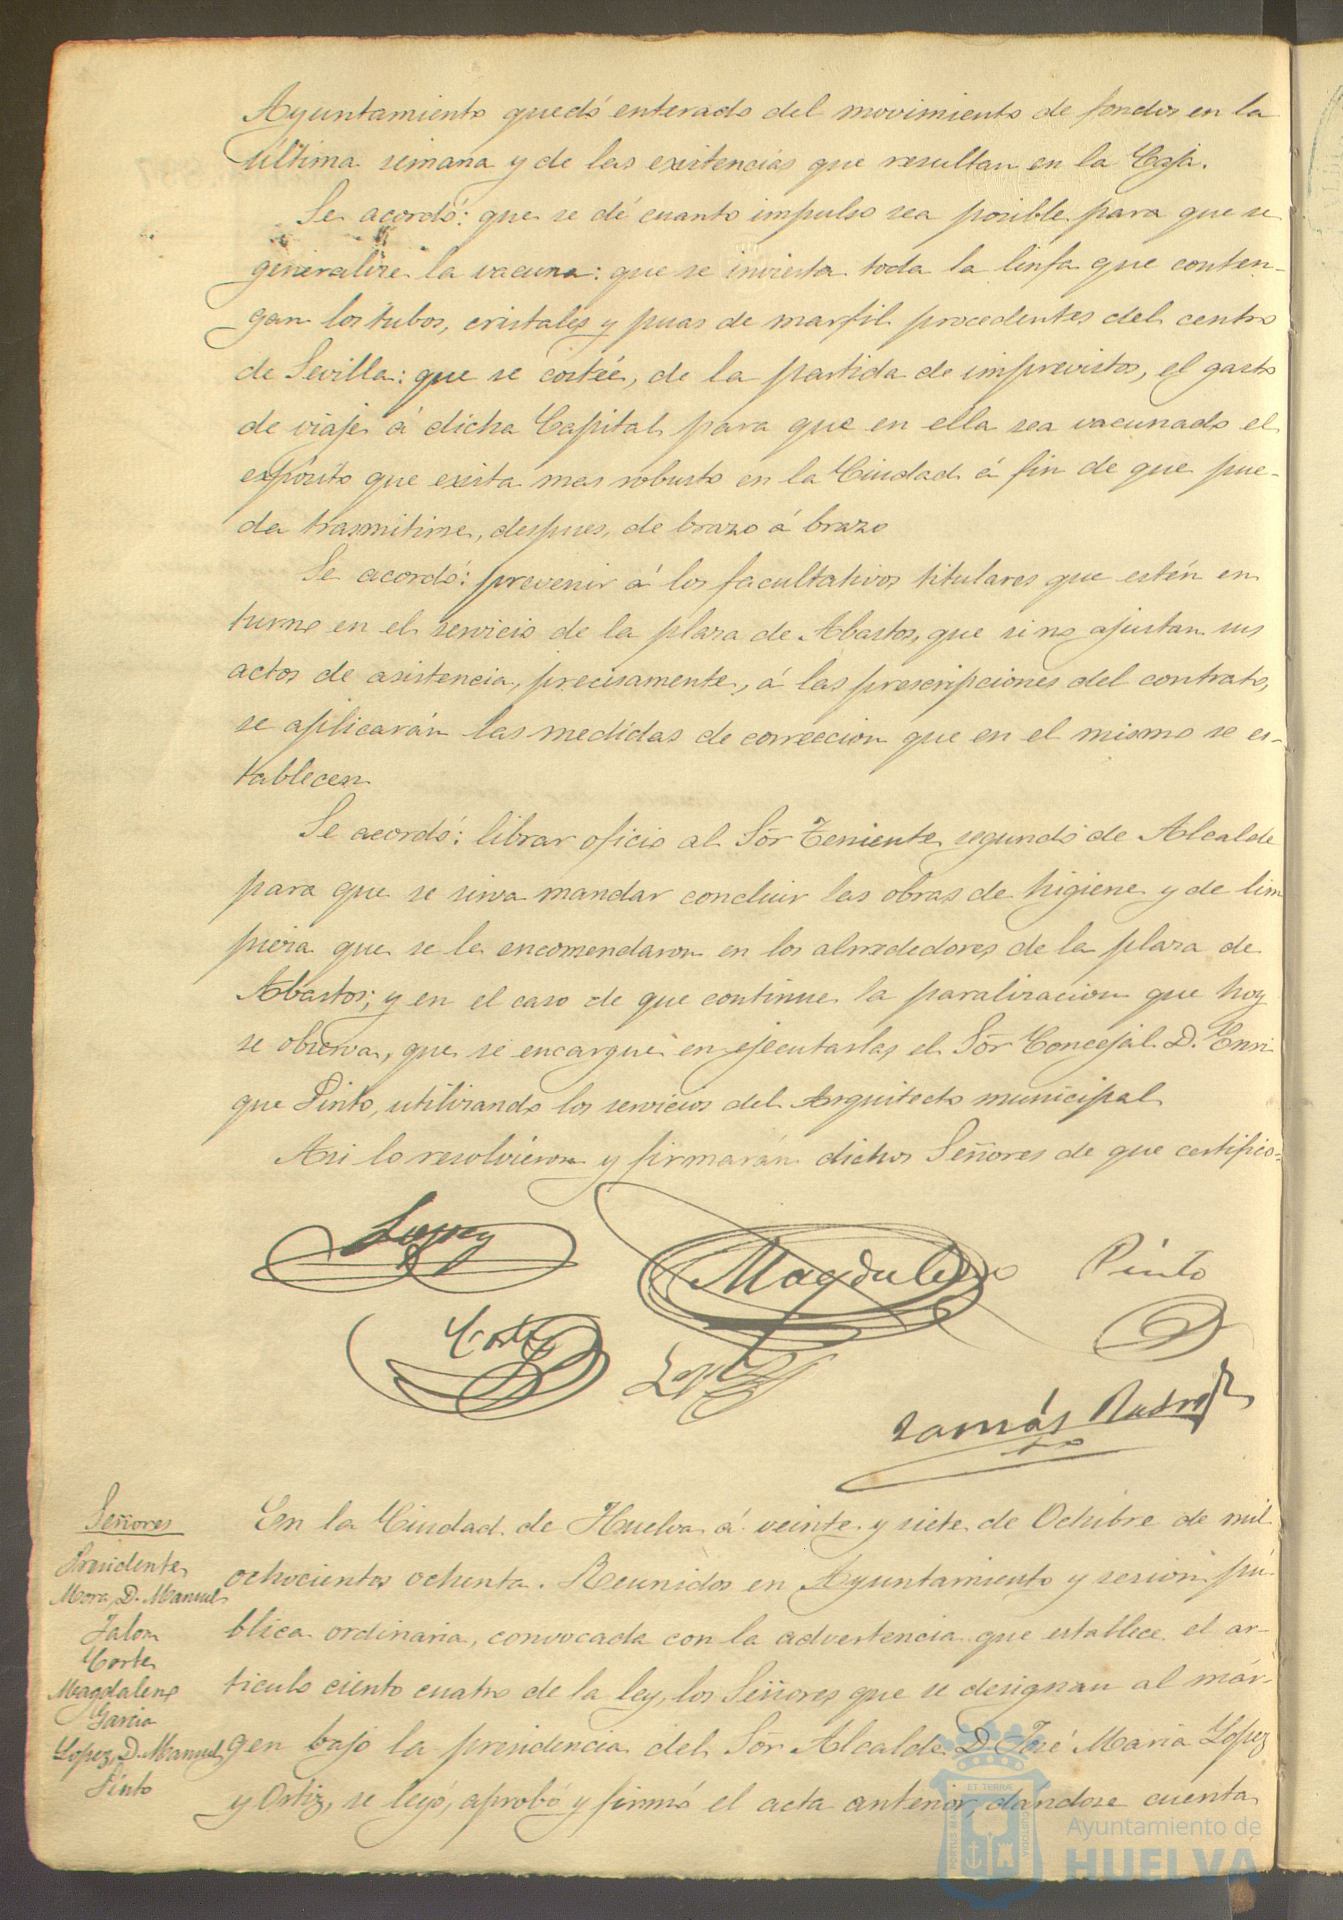 Ayuntamiento quedó enterado del movimiento de fondos en la
última semana y de las existencias que resultan en la Caja.
Se acordó: que se dé cuanto impulso sea posible para que se
generalize la vacuna: que se invierta toda la linfa que conten-
gan los tubos, cristales y puas de marfil procedentes del centro
de Sevilla: que se costée, de la partida de imprevistos, el gasto
de viaje á dicha Capital para que en ella sea vacunado el
espósito que exista mas robusto en la Ciudad á fin de que pue-
da trasmitirse, despues, de brazo á brazo
Se acordó: prevenir á los facultativos titulares que estén en
turno en el servicio de la plaza de Abastos, que si no ajustan sus
actos de asistencia, precisamente, á las prescripciones del contrato,
se aplicarán las medidas de correccion que en el mismo se es-
tablecen
Se acordó: librar oficio al Sor Teniente segundo de Alcalde
para que se sirva mandar concluir las obras de higiene y de lim
pieza que se le encomendaron en los alrrededores de la plaza de
Abastos; y en el caso de que continue la paralizacion que hoy
se observa, que se encargue en ejecutarlas el Sor Concejal D. Enri
que Pinto, utilizando los servicios del Arquitecto municipal
Asi lo resolvieron y firmarán dichos Señores de que certifico=
Lopez Magdaleno Pinto
Corte Lopez
Tomás
Señores
Presidente
Mora, D. Manuel
Jalon
Corte
Magdaleno
Garcia
Lopez, D. Manuel
Pinto
En la Ciudad de Huelva á veinte y siete de Octubre de mil
ochocientos ochenta. Reunidos en Ayuntamiento y sesion pú-
blica ordinaria, convocada con la advertencia que establece el ar-
ticulo ciento cuatro de la ley, los Señores que se designan al már-
gen bajo la presidencia del Sor Alcalde D. José Maria Lopez
y Ortiz, se leyó, aprobó y firmó el acta anterior dándose cuenta
ET TERRÆ
PORTUS MARIS
CUSTODIA
Ayuntamiento de
HUELVA